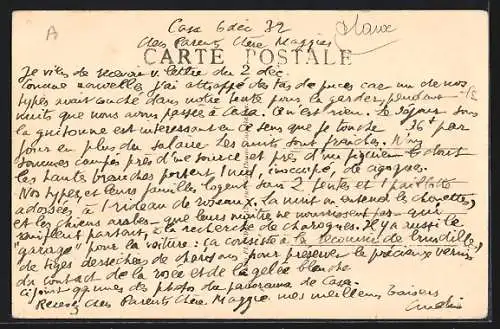 A
Casa 6 déc 32
Chers Parents Chère Maggie
CARTE POSTALE
Je viens de recevoir v. lettre du 2 déc.
Comme nouvelles j'ai attrappé des tas de puces car un de nos
types avait couché dans notre tente pour la garder pendant
nuits que nous avons passées à Casa. Ce n'est rien. Le séjour sous
la guitoune est intéressant en ce sens que je touche 36 par
jour en plus du salaire. Les nuits sont fraîches. N.
sommes campés près d'une source et près d'un figuier dont
les hautes branches portent 1 nid, inoccupé, de cigognes.
Nos types et leurs familles logent sous 2 tentes et 1 paillotte
adossées à 1 rideau de roseaux. La nuit on entend les chouettes,
et les chiens arabes - que leurs maîtres ne nourrissent pas - qui
partout, à la recherche de charognes. Il y a aussi le
"garage" pour la voiture : ça consiste à la recouvrir de
de tiges desséchées de pour préserver le précieux vernis
du contact de la rosée et de la gelée blanche
ci-joint qq unes des photos du panorama de Casa.
Recevez Chers Parents Chère Maggie, mes meilleurs baisers